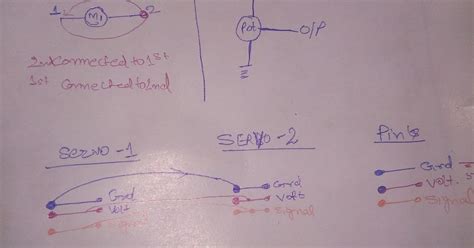 1 M1 2
Pot O/P
2nd connected to 1st
1st Connected to 2nd
SERVO-1 SERVO-2 Pin's
Gnd Gnd Gnd
Volt Volt Volt
Signal Signal Signal